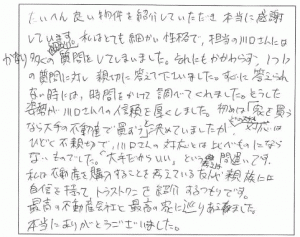 たいへん良い物件を紹介していただき本当に感謝
しています。私はとても細かい性格で、担当の川口さんには
かなり多くの質問をしてしまいました。それにもかかわらず、1つ1つ
の質問に対し親切に答えて下さいました。私に答えられ
ない時には、時間をかけて調べてくれました。そうした
姿勢が川口さんへの信頼を厚くしました。初めは「家を買う
なら大手の不動産で買おう」と決めていましたが、対応は
ひどく不親切で、川口さんの対応とは比べものになら
ないものでした。"大手だからいい"という考えは間違いです。
私は不動産を購入することを考えている友人や親族には
自信を持ってトラストワンを紹介するつもりです。
最高の不動産会社と最高の家に巡りあえました。
本当にありがとうございました。